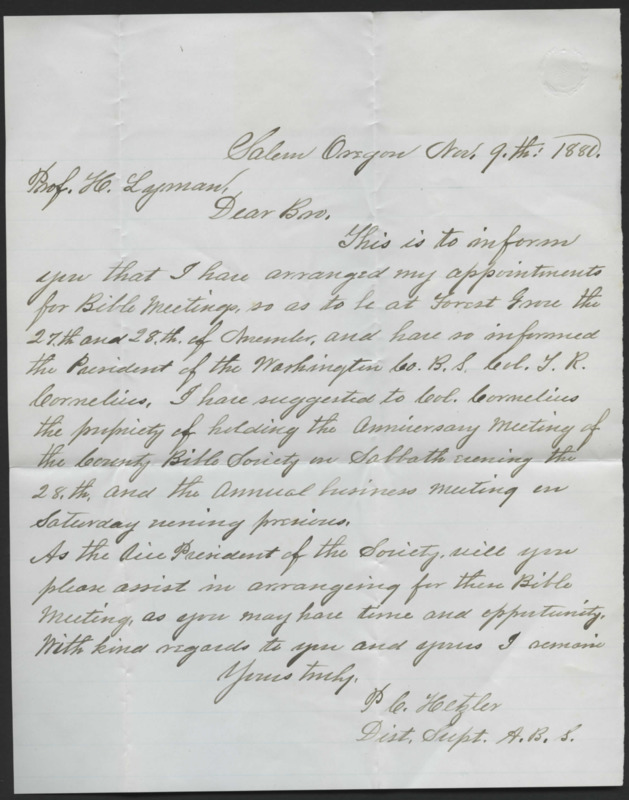 Salem Oregon Nov. 9.th: 1880.
Prof. H. Lyman,
Dear Bro.
This is to inform
you that I have arranged my appointments
for Bible Meetings, so as to be at Forest Grove the
27.th and 28.th. of November, and have so informed
the President of the Washington Co. B. S. Col. T. R.
Cornelius. I have suggested to Col. Cornelius
the propriety of holding the Anniversary Meeting of
the County Bible Society on Sabbath evening the
28.th. and the Annual business Meeting on
Saturday evening previous.
As the Vice President of the Society, will you
please assist in arrangeing for these Bible
Meeting, as you may have time and opportunity.
With kind regards to you and yours I remain
Yours truly,
P. C. Hetzler
Dist. Supt. A. B. S.